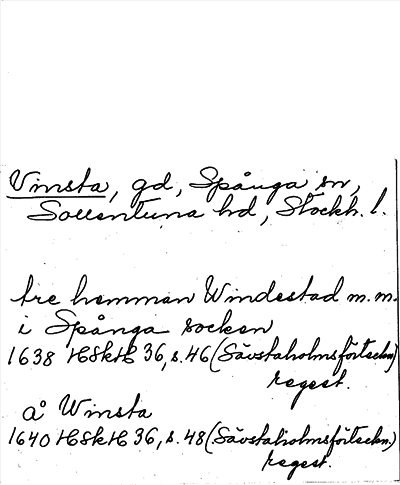 Vinsta, gd, Spånga sn,
Sollentuna hd, Stockh. l.
tre hemman Windestad m.m.
i Spånga socken
1638 HSkH 36, s. 46 (Sävstaholmsförteckn)
regest.
å Winsta
1640 HSkH 36, s. 48 (Sävstaholmsförteckn.)
regest.